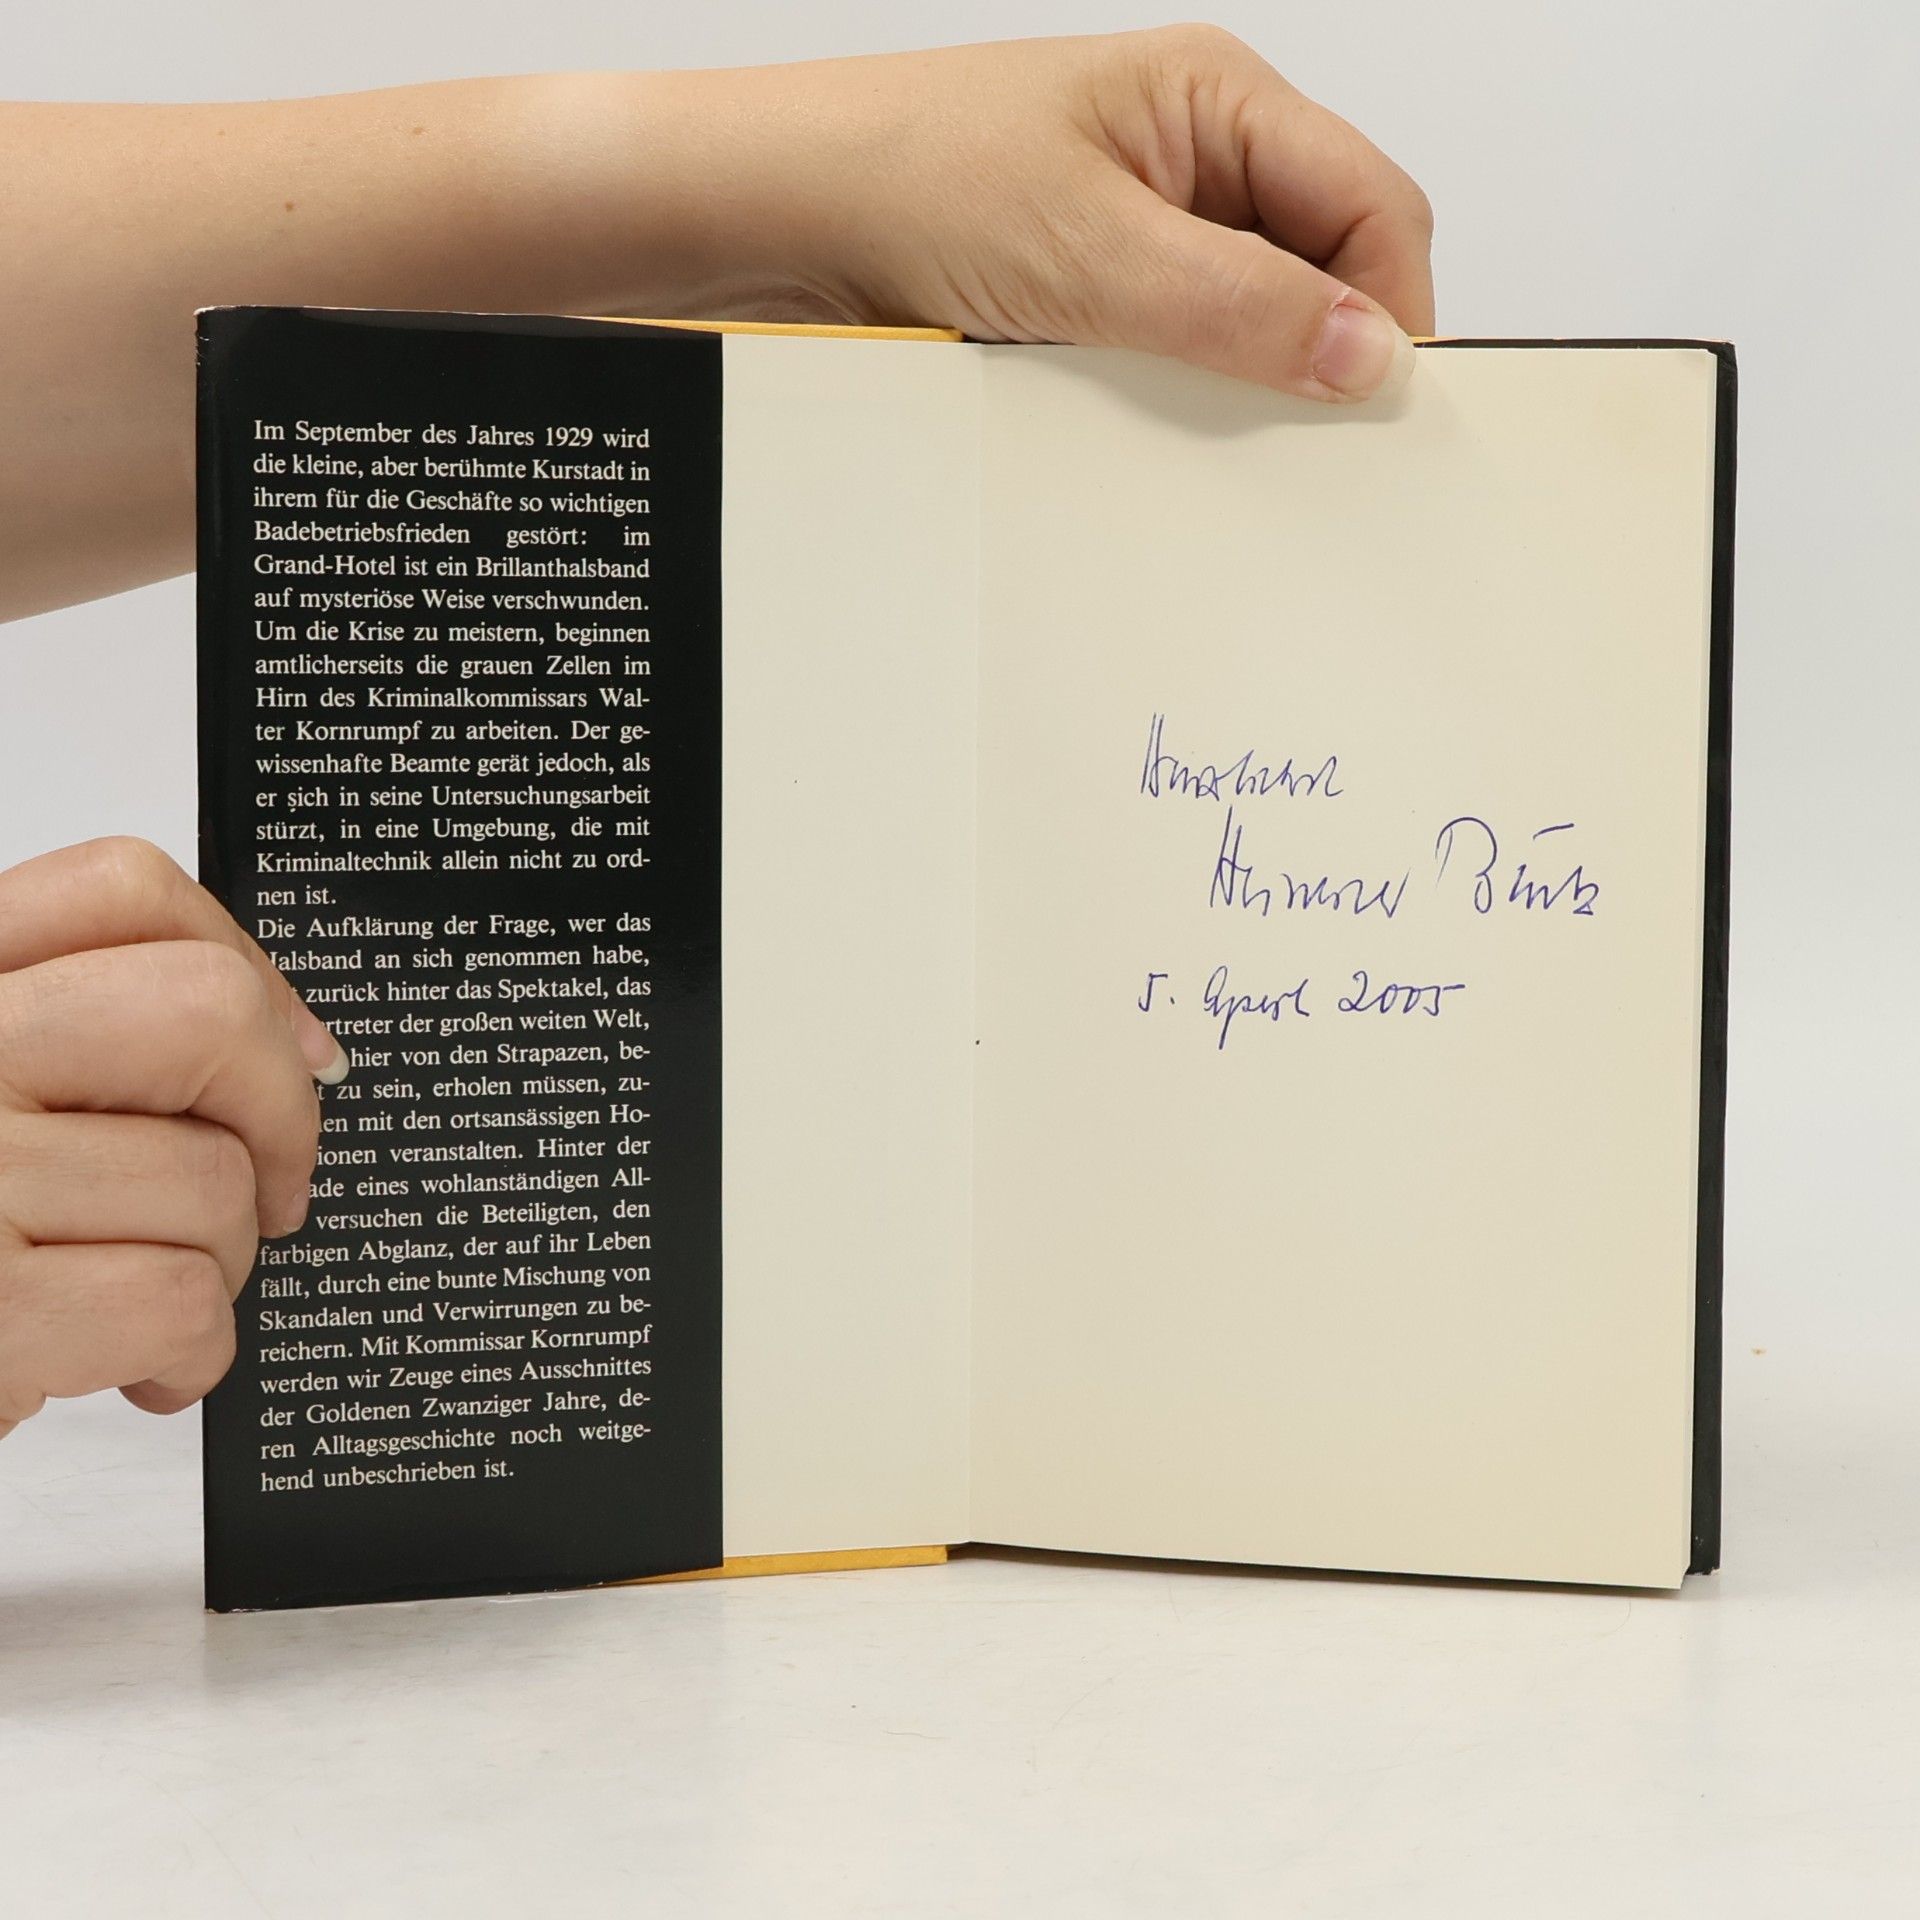 Im September des Jahres 1929 wird
die kleine, aber berühmte Kurstadt in
ihrem für die Geschäfte so wichtigen
Badebetriebsfrieden gestört: im
Grand-Hotel ist ein Brillanthalsband
auf mysteriöse Weise verschwunden.
Um die Krise zu meistern, beginnen
amtlicherseits die grauen Zellen im
Hirn des Kriminalkommissars Wal-
ter Kornrumpf zu arbeiten. Der ge-
wissenhafte Beamte gerät jedoch, als
er sich in seine Untersuchungsarbeit
stürzt, in eine Umgebung, die mit
Kriminaltechnik allein nicht zu ord-
nen ist.
Die Aufklärung der Frage, wer das
Halsband an sich genommen habe,
zurück hinter das Spektakel, das
rtreter der großen weiten Welt,
hier von den Strapazen, be-
t zu sein, erholen müssen, zu-
en mit den ortsansässigen Ho-
ionen veranstalten. Hinter der
ade eines wohlanständigen All-
versuchen die Beteiligten, den
farbigen Abglanz, der auf ihr Leben
fällt, durch eine bunte Mischung von
Skandalen und Verwirrungen zu be-
reichern. Mit Kommissar Kornrumpf
werden wir Zeuge eines Ausschnittes
der Goldenen Zwanziger Jahre, de-
ren Alltagsgeschichte noch weitge-
hend unbeschrieben ist.
5. April 2005